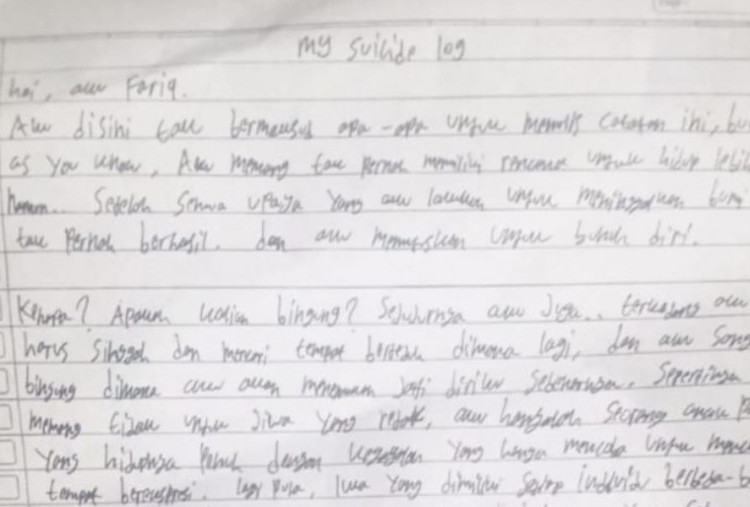 my suicide log
hai, aku Fariq.
Aku disini tak bermaksud apa-apa untuk menulis catatan ini, bu
as you know, Aku memang tak pernah memiliki rencana untuk hidup lebih
Setelah semua upaya yang aku lakukan untuk meninggalkan bumi
tak pernah berhasil. dan aku memutuskan untuk bunuh diri.
Kenapa? Apakah kalian bingung? Sejujurnya aku juga.. terkadang aku
harus singgah dan mencari tempat berteduh dimana lagi, dan aku sang
bingung dimana aku akan menemukan jati diriku sebenarnya. Sepertinya
memang tidak untuk jiwa yang retak, aku hanyalah seorang anak
yang hidupnya penuh dengan yang hanya mencoba untuk
tempat lagi pula, luka yang dimiliki setiap individu berbeda-b